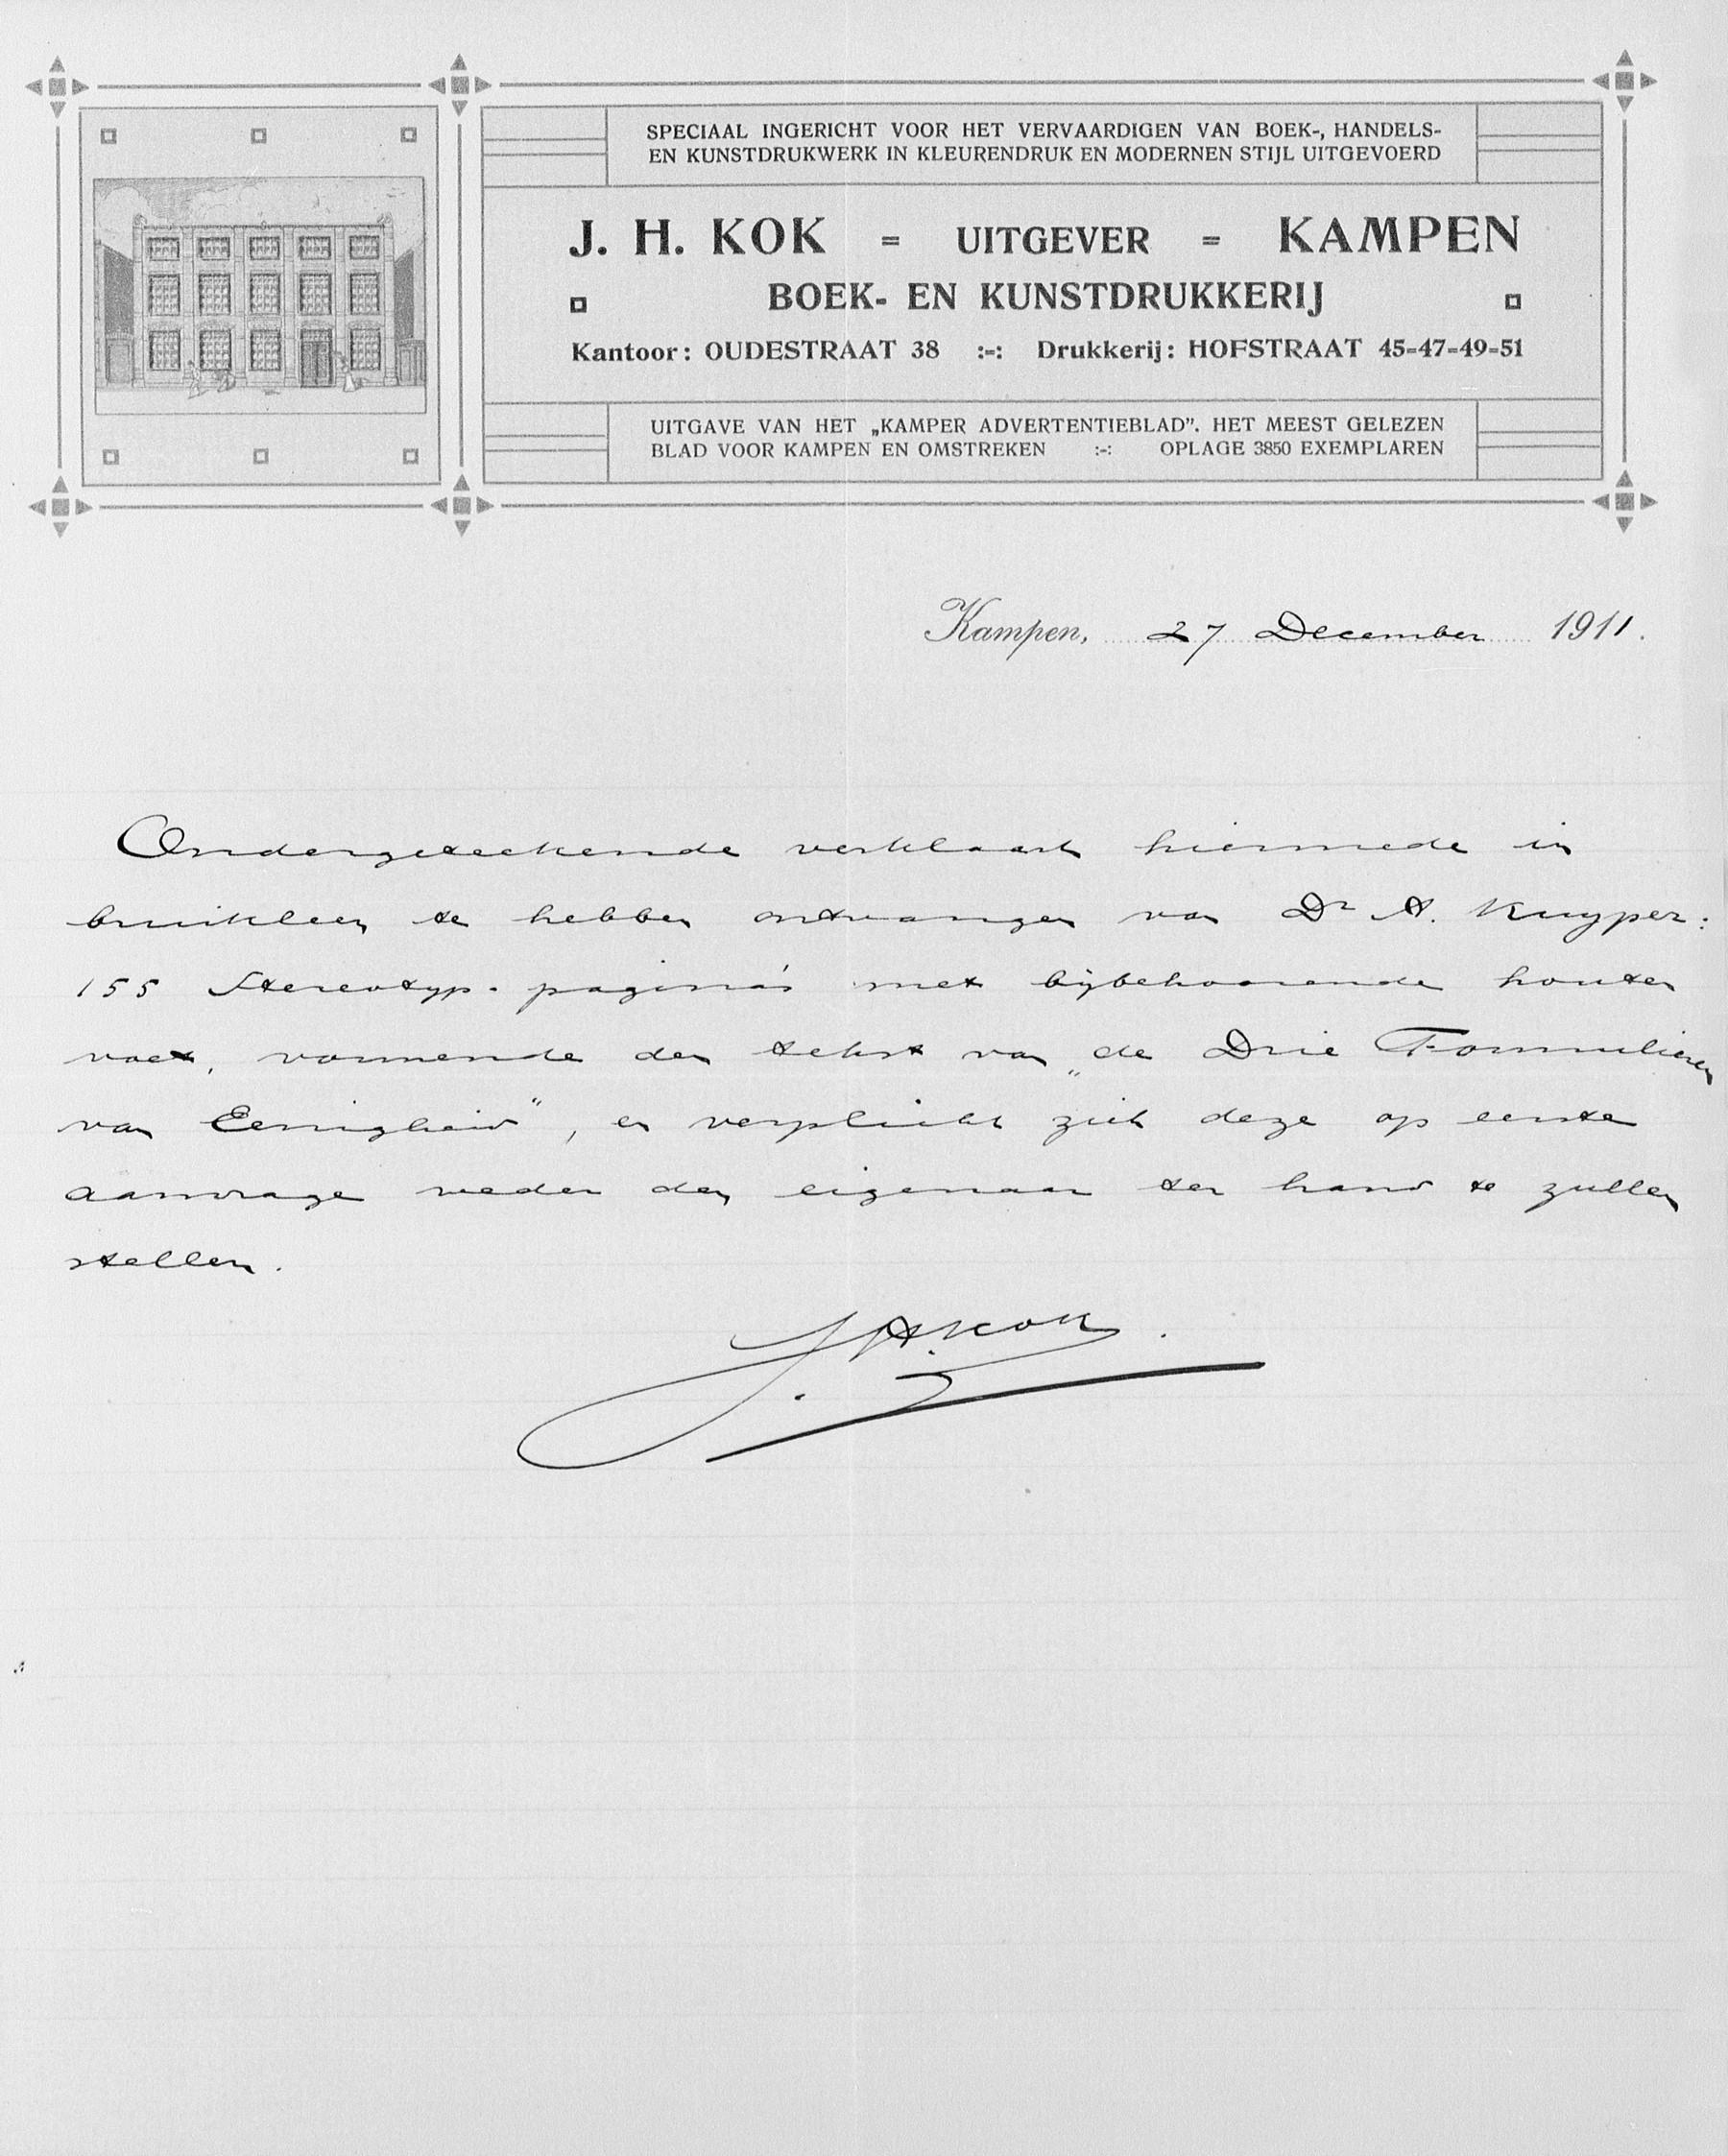 SPECIAAL INGERICHT VOOR HET VERVAARDIGEN VAN BOEK-, HANDELS-
EN KUNSTDRUKWERK IN KLEURENDRUK EN MODERNEN STIJL UITGEVOERD
J. H. KOK = UITGEVER = KAMPEN
BOEK- EN KUNSTDRUKKERIJ
Kantoor: OUDESTRAAT 38 :-: Drukkerij: HOFSTRAAT 45-47-49-51
UITGAVE VAN HET „KAMPER ADVERTENTIEBLAD". HET MEEST GELEZEN
BLAD VOOR KAMPEN EN OMSTREKEN :-: OPLAGE 3850 EXEMPLAREN
Kampen, 27 December 1911.
Ondergeteekende verklaart hiermede in
bruikleen te hebben ontvangen van Dr A. Kuyper:
155 Stereotyp. pagina's met bijbehoorende houten
voet, vormende den tekst van „de Drie Formulieren
van Eenigheid", en verplicht zich deze op eerste
aanvrage weder den eigenaar ter hand te zullen
stellen.
J. H. Kok.